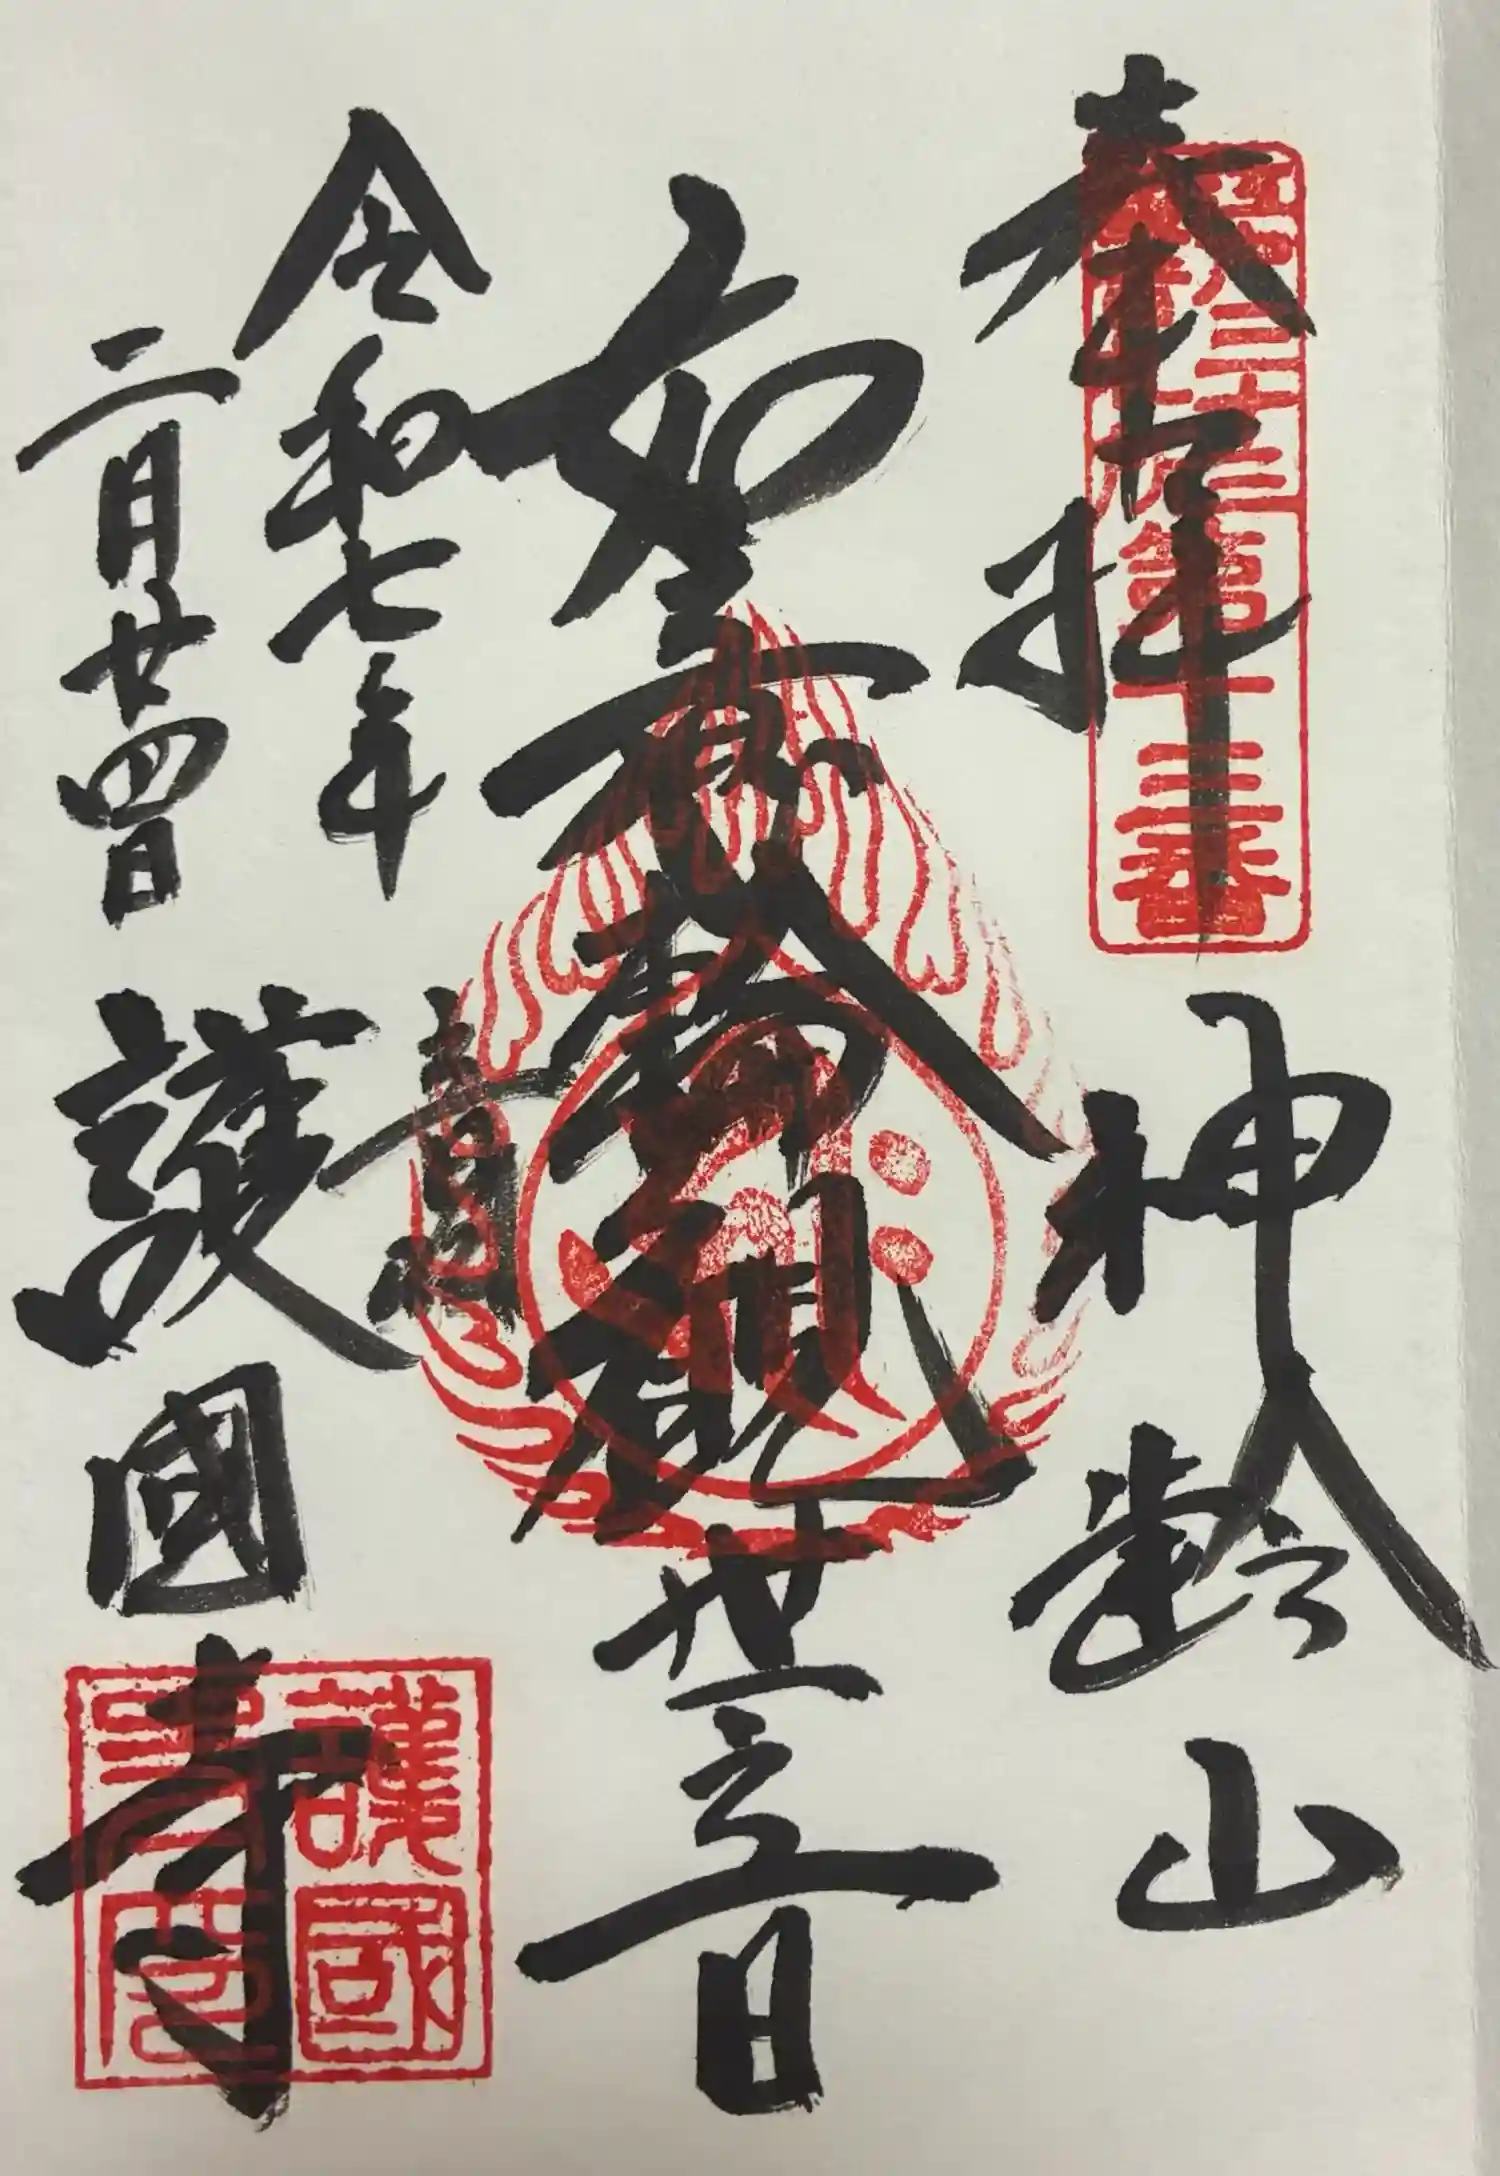 奉拝
神齢山
如意輪観世音
令和七年
二月廿四日
護國寺
第十三番
護國寺印